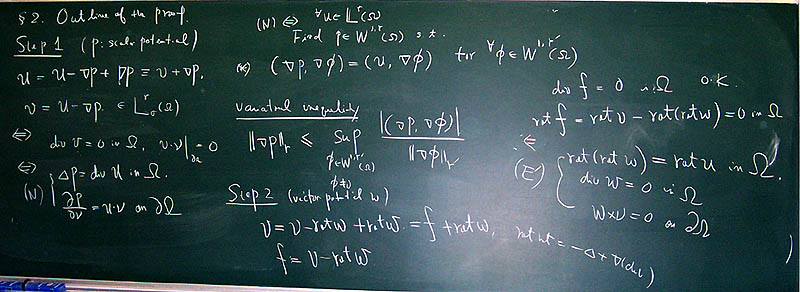 §2. Outline of the proof.
Step 1 (p: scalar potential)
u = u - ∇p + ∇p ≡ v + ∇p.
v = u - ∇p ∈ L^r_σ(Ω)
⇔ div v = 0 in Ω, v·ν|_∂Ω = 0
⇔
(N) { Δp = div u in Ω.
∂p/∂ν = u·ν on ∂Ω
(N) ⇔ ∀u ∈ L^r(Ω)
Find p ∈ W^{1,r}(Ω) s.t.
(*) (∇p, ∇φ) = (u, ∇φ) for ∀φ ∈ W^{1,r'}(Ω)
variational inequality
‖∇p‖_r ≤ sup_{φ∈W^{1,r'}(Ω), φ≠0} |(∇p, ∇φ)| / ‖∇φ‖_{r'}
Step 2 (vector potential w)
v = v - rot w + rot w = f + rot w,
f = v - rot w
rot rot = -Δ + ∇(div)
div f = 0 in Ω O.K.
rot f = rot v - rot(rot w) = 0 in Ω
⇐
(E) { rot(rot w) = rot u in Ω.
div w = 0 in Ω
w×ν = 0 on ∂Ω